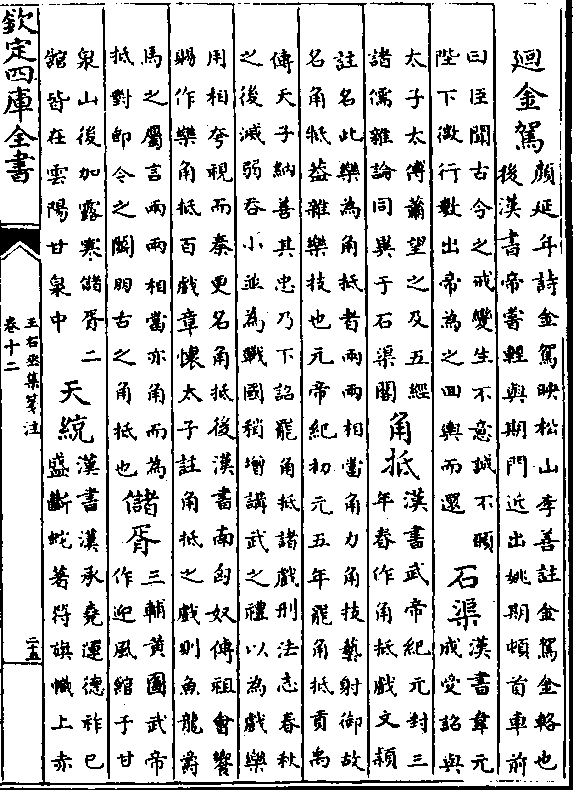 廻金駕
顔延年詩金駕映松山李善註金駕金輅也
後漢書帝嘗輕輿期門近出姚期頓首車前
曰臣聞古今之戒變生不意誠不願
陛下微行數出帝為之回輿而還
石渠
漢書韋元
成受詔與
太子太傅蕭望之及五經
諸儒雜論同異于石渠閣
角抵
漢書武帝紀元封三
年春作角抵戲文穎
註名此樂為角抵者兩兩相當角力角技藝射御故
名角抵葢雜樂技也元帝紀初元五年罷角抵貢禹
傳天子納善其忠乃下詔罷角抵諸戲刑法志春秋
之後滅弱吞小並為戰國稍增講武之禮以為戲樂
用相夸視而秦更名角抵後漢書南匈奴傳祖會饗
賜作樂角抵百戲章懷太子註角抵之戲則魚龍爵
馬之屬言兩兩相當亦角而為
抵對即今之鬭朋古之角抵也
儲胥
三輔黄圖武帝
作迎風館于甘
泉山後加露寒儲胥二
舘皆在雲陽甘泉中
天統
漢書漢承堯運德祚已
盛斷蛇著符旗幟上赤
欽定四庫全書
王右丞集箋注
卷十二
二五